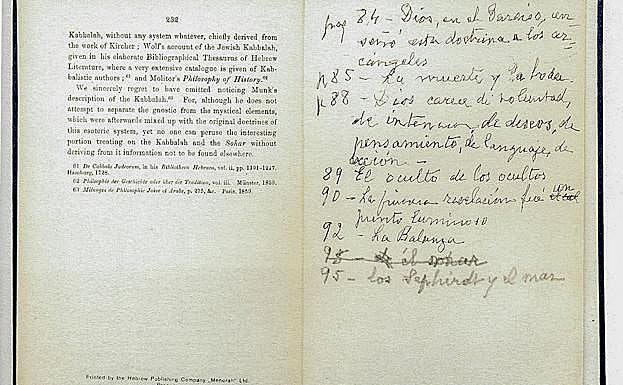 232
Kabbalah, without any system whatever, chiefly derived from
the work of Kircher; Wolf's account of the Jewish Kabbalah,
given in his elaborate Bibliographical Thesaurus of Hebrew
Literature, where a very extensive catalogue is given of Kab-
balistic authors; 61 and Molitor's Philosophy of History.62
We sincerely regret to have omitted noticing Munk's
description of the Kabbalah.63 For, although he does not
attempt to separate the gnostic from the mystical elements,
which were afterwards mixed up with the original doctrines of
this esoteric system, yet no one can peruse the interesting
portion treating on the Kabbalah and the Sohar without
deriving from it information not to be found elsewhere.
61 De Cabbala Judaeorum, in his Bibliotheca Hebraea, vol. ii, pp. 1191-1247.
Hamburg, 1728.
62 Philosophie der Geschichte oder über die Tradition, vol. iii. Münster, 1839.
63 Mélanges de Philosophie Juive et Arabe, p. 275, &c. Paris, 1859.
Printed by the Hebrew Publishing Company „Menorah" Ltd.
pag 84 - Dios, en el Paraíso, en-
señó esta doctrina a los ar-
cángeles
p 85 - La muerte y la boda
p 88 - Dios carece de voluntad,
de intención, de deseos, de
pensamiento, de lenguaje, de
acción -
89 El oculto de los ocultos
90 - La primera revelación fué un
punto luminoso
92 - La Balanza
95 - los Sephirot y el mar